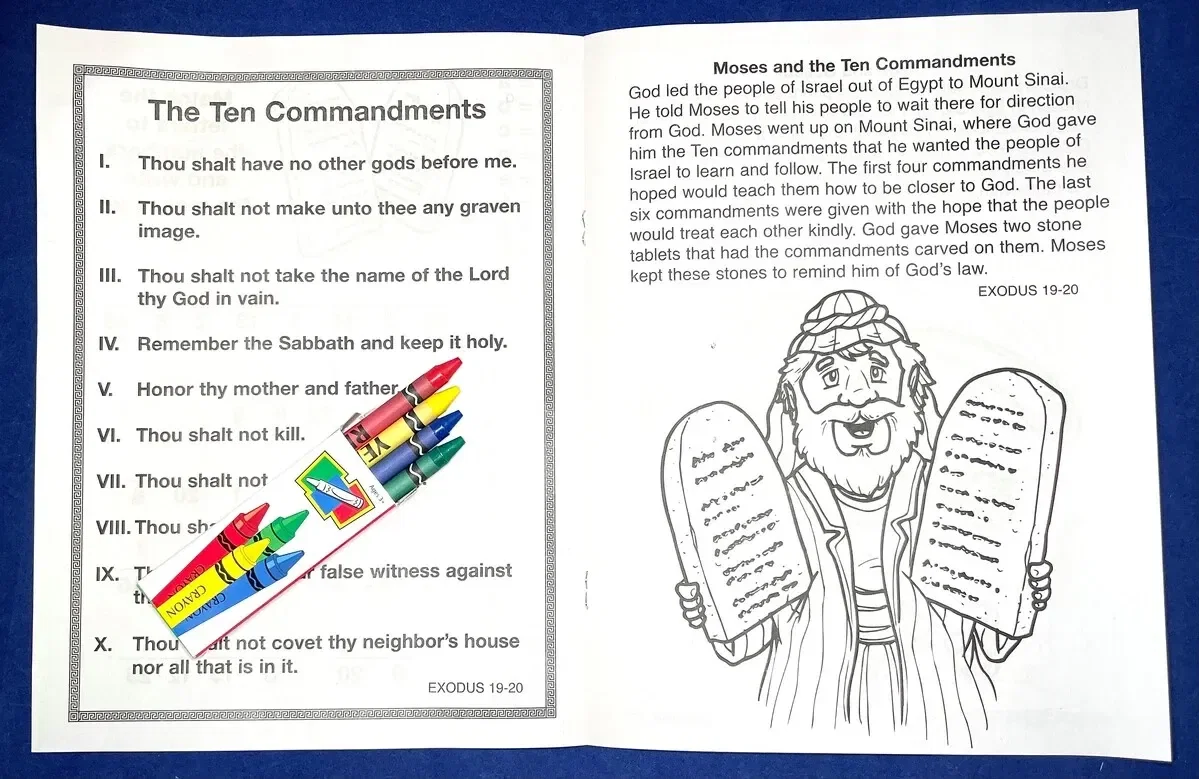 The Ten Commandments
I. Thou shalt have no other gods before me.
II. Thou shalt not make unto thee any graven
image.
III. Thou shalt not take the name of the Lord
thy God in vain.
IV. Remember the Sabbath and keep it holy.
V. Honor thy mother and father
VI. Thou shalt not kill.
VII. Thou shalt not
VIII. Thou
IX.
false witness against
X. Thou not covet thy neighbor's house
nor all that is in it.
EXODUS 19-20
CRAYON
CRAYON
CRAYON
Ages 3+
Moses and the Ten Commandments
God led the people of Israel out of Egypt to Mount Sinai.
He told Moses to tell his people to wait there for direction
from God. Moses went up on Mount Sinai, where God gave
him the Ten commandments that he wanted the people of
Israel to learn and follow. The first four commandments he
hoped would teach them how to be closer to God. The last
six commandments were given with the hope that the people
would treat each other kindly. God gave Moses two stone
tablets that had the commandments carved on them. Moses
kept these stones to remind him of God's law.
EXODUS 19-20